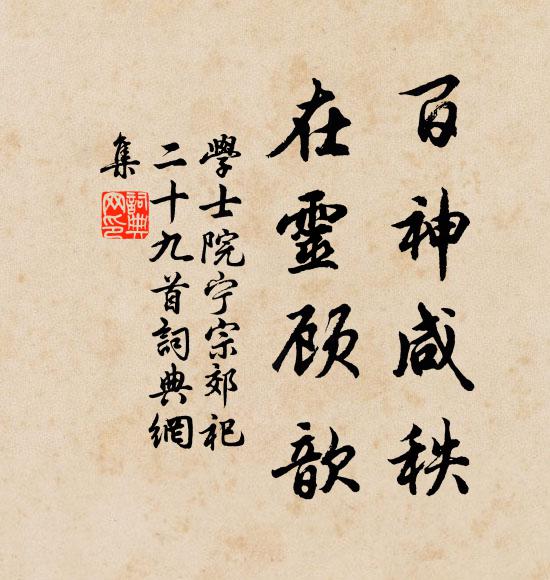 百神咸秩
在靈顧歆
學士院宁宗郊祀
二十九首詞典網
集
詞典
网印